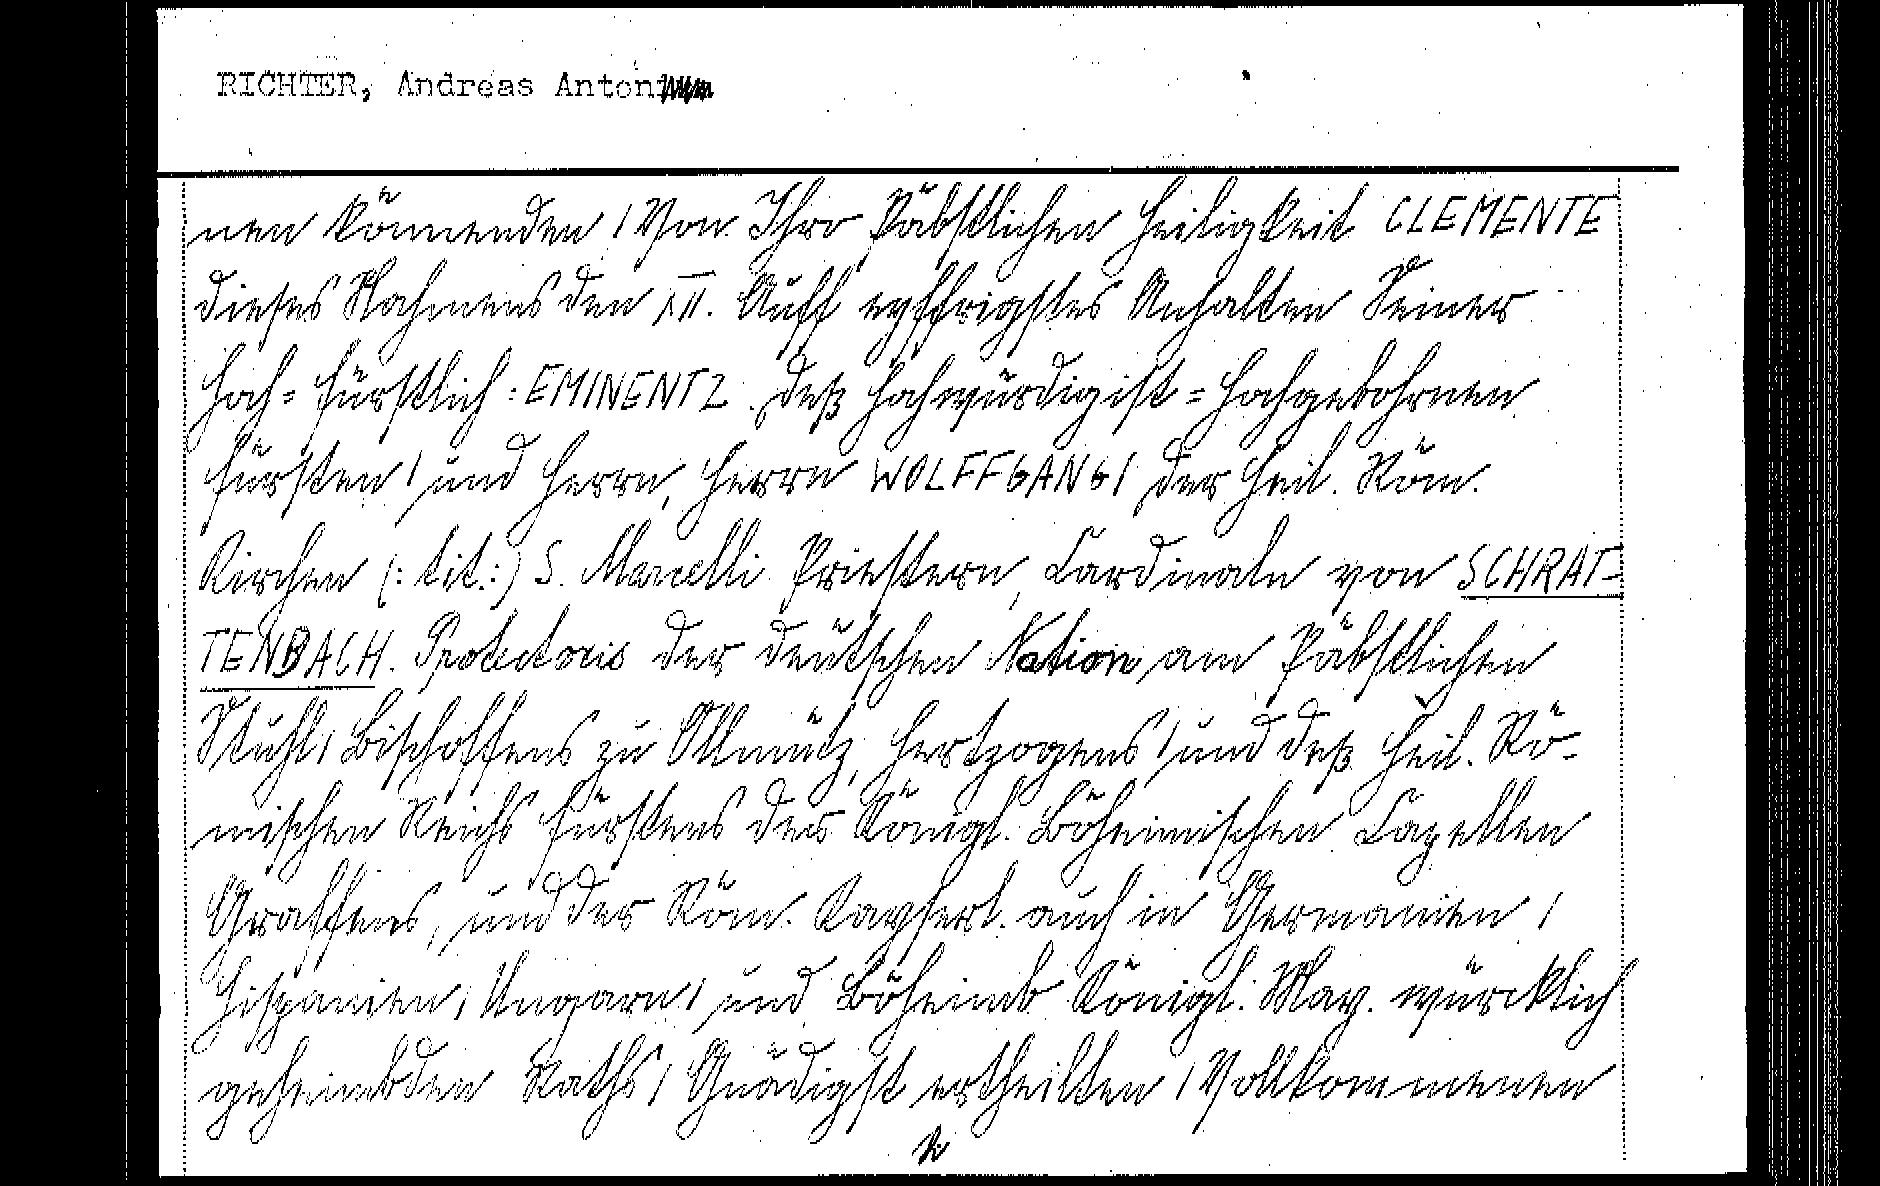 RICHTER, Andreas Anton
nen könnenden / Von Ihro Päbstlichen Heiligkeit CLEMENTE
dieses Nahmens den XII. Auff eyffrigstes Anhalten Seiner
Hoch= Fürstlich: EMINENTZ. Deß Hochwürdigist= Hochgebohrnen
Fürsten / und Herrn, Herrn WOLFFGANG / der Heil. Röm.
Kirchen (: tit.:) S. Marcelli Priestern, Cardinaln von SCHRAT-
TENBACH. Protectoris der deutschen Nation am Päbstlichen
Stuhl / Bischoffens zu Ollmütz, Hertzogens / und deß Heil. Rö-
mischen Reichs Fürstens der Königl. Böheimischen Capellen
Graffens, und der Röm. Kayserl. auch in Germanien /
Hispanien / Ungarn / und Böheimb Königl: May. würcklich
geheimbden Raths / Gnädigst ertheilten / Vollkommenen